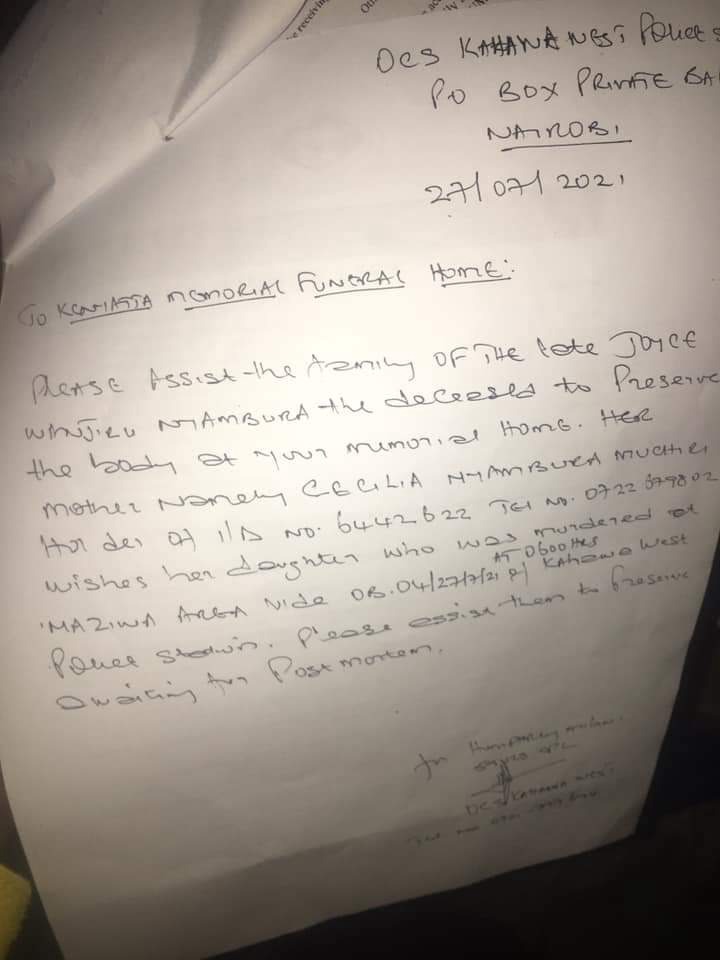 e receiving
OCS KAHAWA WEST POLICE S
P.O BOX PRIVATE BA
NAIROBI
27/07/2021
TO KENYATTA MEMORIAL FUNERAL HOME:
PLEASE ASSIST the family OF THE late JOYCE
WANJIRU NYAMBURA the deceased to Preserve
the body at your memorial HOME. HER
mother Namely CECILIA NYAMBURA MUCHIRI
Holder of I/D NO. 6442622 Tel No. 0722 679802
wishes her daughter who was murdered at
AT 0600 HRS
MAZIWA AREA Vide OB.04/27/7/21 of Kahawa West
Police station. Please assist them to Preserve
awaiting for Postmortem.
for Humphrey
OCS KAHAWA WEST